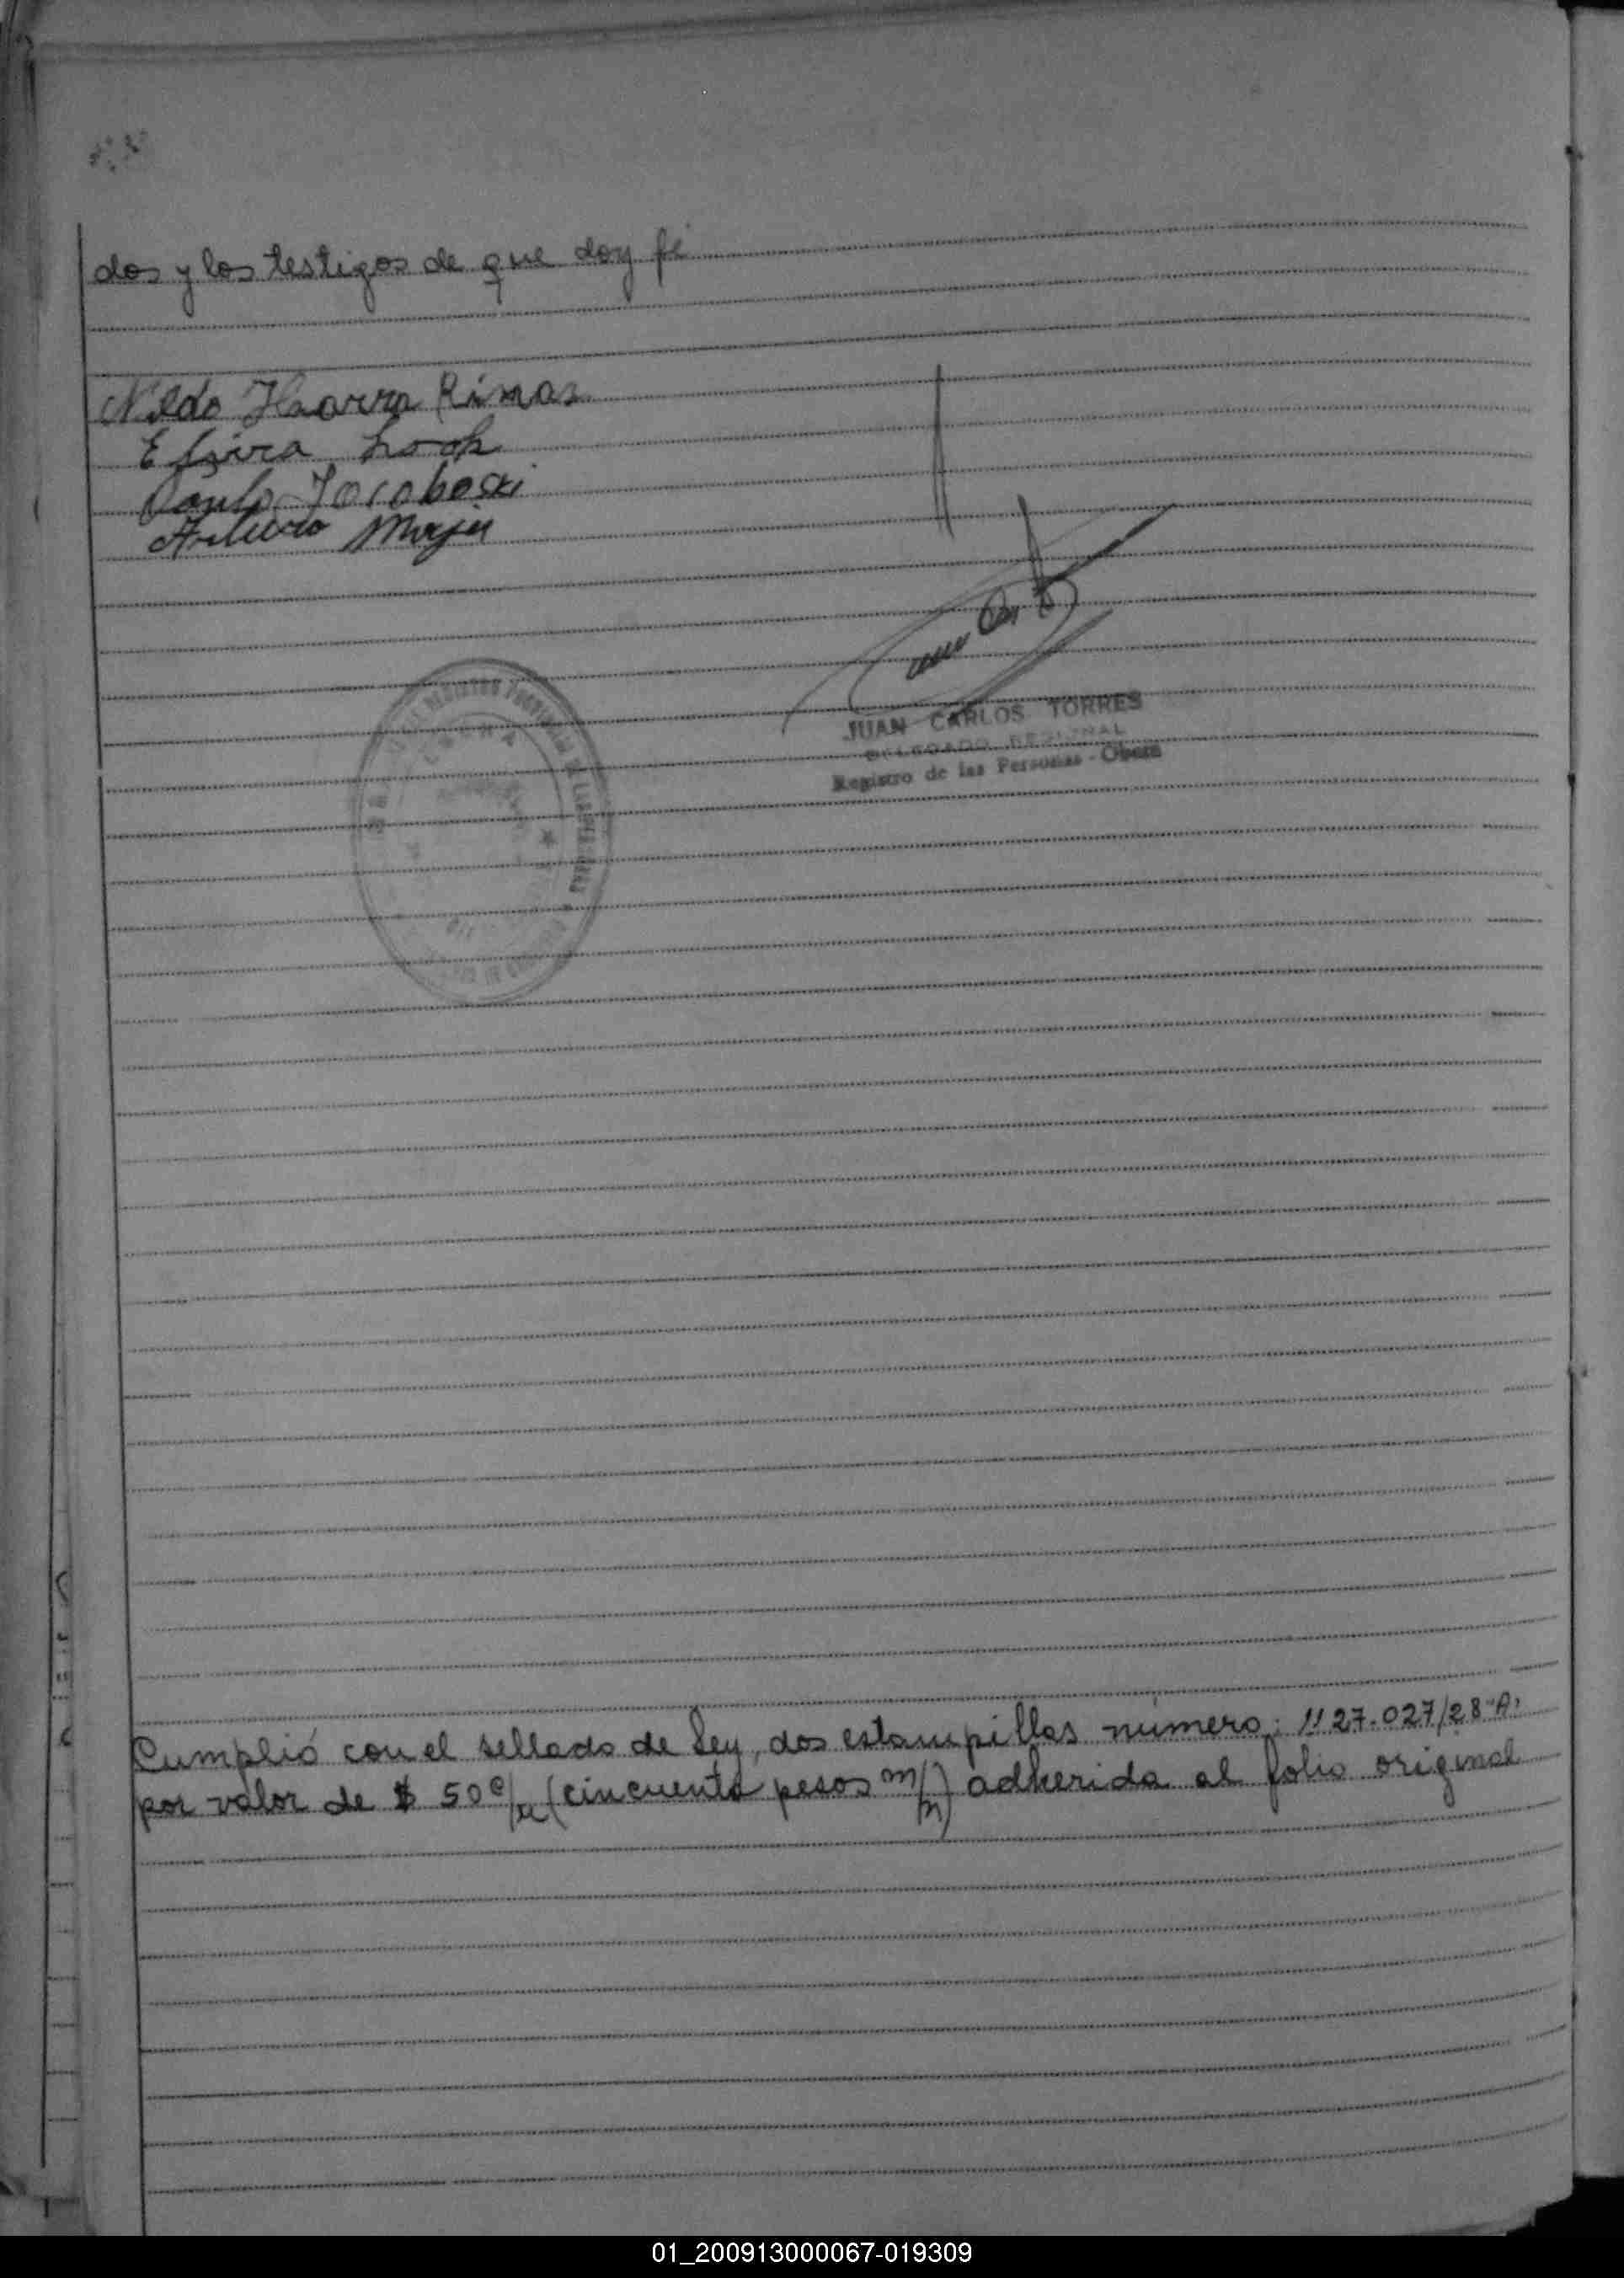 dos y los testigos de que doy fé
Nildo Ibarra Rimas
Elvira
Jacoboski
Arturo
JUAN CARLOS TORRES
DELEGADO REGIONAL
Registro de las Personas - Oberá
Cumplió con el sellado de Ley, dos estampillas número: 1127.027/28 "A"
por valor de $ 50 c/u (cincuenta pesos m/n) adherida al folio original
01_200913000067-019309